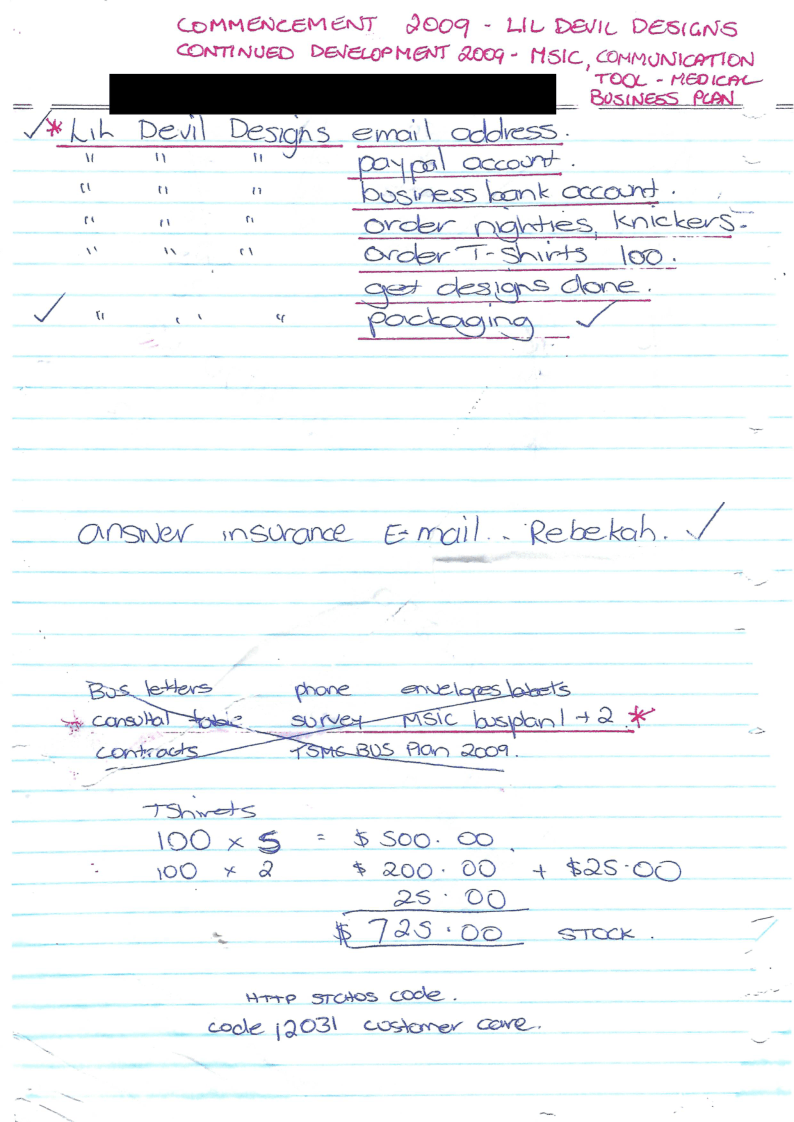 COMMENCEMENT 2009 - LIL DEVIL DESIGNS
CONTINUED DEVELOPMENT 2009 - MSIC, COMMUNICATION
TOOL - MEDICAL
BUSINESS PLAN
✓ * Lil Devil Designs email address.
" " " paypal account.
" " " business bank account.
" " " order nighties, knickers.
" " " order T-Shirts 100.
get designs done.
✓ " " " packaging ✓
answer insurance E-mail.. Rebekah. ✓
Bus letters phone envelopes labels
* survey MSIC busplan 1 + 2 *
contracts TSMG BUS Plan 2009.
TShirts
100 x 5 = $500.00
: 100 x 2 $200.00 + $25.00
25.00
$725.00 STOCK.
HTTP code.
code 12031 customer care.